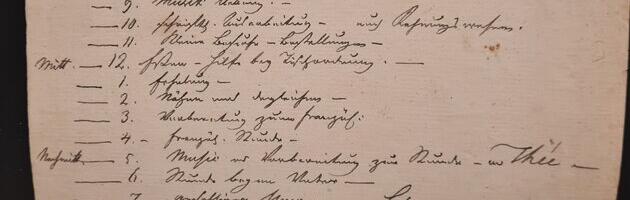 9. Musik Uebung. –
10. schriftl. Ausarbeitung – auch Rechnungswesen.
11. Kleine Besuche – Bestellungen –
Mitt. – 12. Essen – Hilfe bey Tischordnung. –
1. Erholung –
2. Nähen und dergleichen –
3. Vorbereitung zum französ:
4. – französ. Stunde –
Nachmitt. 5. Music od Vorbereitung zur Stunde – od Thée –
6. Stunde beym Vater –
7.